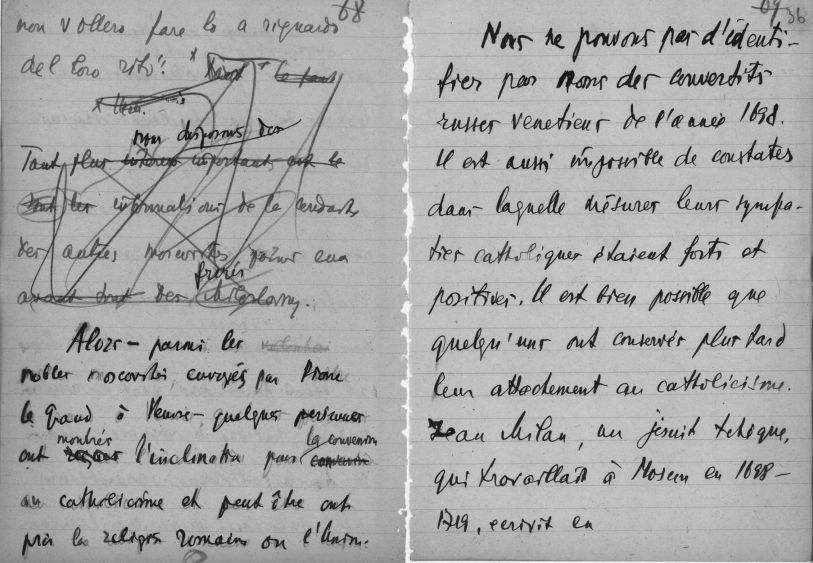 68
non vollero fare lo a riguardo
del loro rito".
nous disposons des
Tant plus importants est le
tout les informations de la conduite
des autres moscovites
frères
avant tout des Miloslavsky.
Alors – parmi les
nobles moscovites envoyés par Pierre
le Grand à Venise – quelques personnes
montrés la conversion
ont l'inclination pour
au catholicisme et peut être ont
pris la religion romaine ou l'Union.
69 36
Nous ne pouvons pas d'identi-
fier par noms des convertits
russes venetiens de l'année 1698.
Il est aussi impossible de constater
dans laquelle mésure leurs sympa-
ties catholiques étaient forts et
positives. Il est bien possible que
quelqu'uns ont conservés plus tard
leur attachement au catholicisme.
Jean Milan, un jesuit tchèque,
qui travaillait à Moscou en 1698 –
1719, ecrivit en